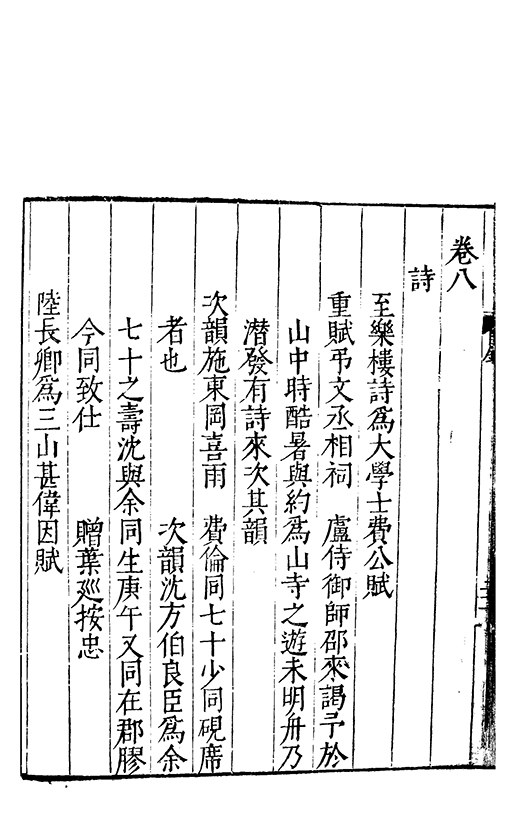 卷八
詩
至樂樓詩爲大學士費公賦
重賦弔文丞相祠　盧侍御師邵來謁予於
山中時酷暑與約爲山寺之遊未明舟乃
潛發有詩來次其韻
次韻施東岡喜雨　費倫同七十少同硯席
者也　次韻沈方伯良臣爲余
七十之壽沈與余同生庚午又同在郡膠
今同致仕　贈葉廵按忠
陸長卿爲三山甚偉因賦